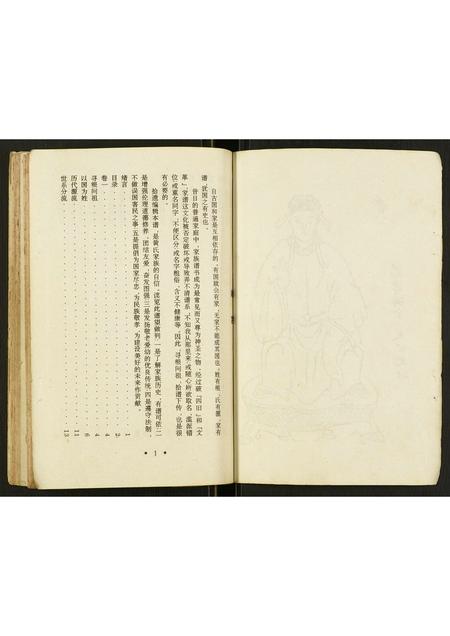 自古国和家是互相依存的，有国就会有家，无家不能成其国也，姓有根，氏有源，家有
谱，犹国之有史也。
昔日的普通家庭中，家族谱书成为最常见而又尊为神圣之物，经过破“四旧”和“文
革”家谱这文化被否定破坏或导致弄不清谱系，不知我从那里来，或随心所欲取名，派辈错
位或重名同字，不便区分，或名字粗俗，含义不健康等，因此，寻根问祖，拾谱下传，也是很
有必要的。
拾遗编辑本谱，是黄氏家族的自信，流览此谱望做到一是了解家族历史，有谱可依二
是增强伦理道德修养，团结友爱，奋发图强三是发扬敬老爱幼的优良传统，四是遵守法制，
不做误国害民之事五是提倡为国家尽忠，为民族敬孝，为建设美好的未来作贡献。
绪言 1
目录 2
卷一 4
寻根问祖 4
以国为姓 6
历代源流 11
世系分流 13
• 1 •